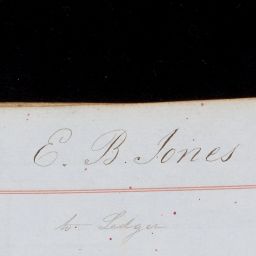 E. B. Jones
Ledger